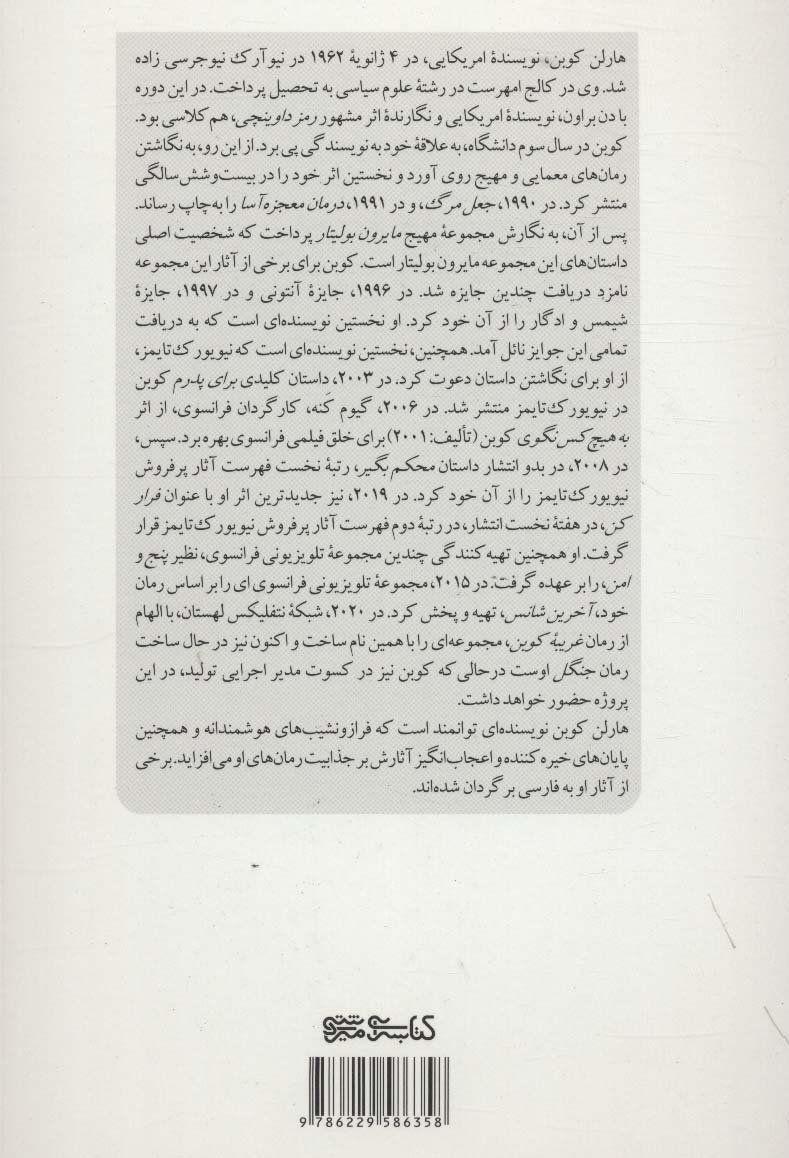 هارلن کوبن، نویسندهٔ امریکایی، در ۴ ژانویهٔ ۱۹۶۲ در نیوآرک نیوجرسی زاده
شد. وی در کالج امهرست در رشتهٔ علوم سیاسی به تحصیل پرداخت. در این دوره
با دن براون، نویسندهٔ امریکایی و نگارندهٔ اثر مشهور رمز داوینچی، هم‌کلاسی بود.
کوبن در سال سوم دانشگاه، به علاقهٔ خود به نویسندگی پی برد. از این رو، به نگاشتن
رمان‌های معمایی و مهیج روی آورد و نخستین اثر خود را در بیست‌وشش‌سالگی
منتشر کرد. در ۱۹۹۰، جعل مرگ، و در ۱۹۹۱، درمان معجزه‌آسا را به‌چاپ رساند.
پس از آن، به نگارش مجموعهٔ مهیج مایرون بولیتار پرداخت که شخصیت اصلی
داستان‌های این مجموعه مایرون بولیتار است. کوبن برای برخی از آثار این مجموعه
نامزد دریافت چندین جایزه شد. در ۱۹۹۶، جایزهٔ آنتونی و در ۱۹۹۷، جایزهٔ
شیمس و ادگار را از آن خود کرد. او نخستین نویسنده‌ای است که به دریافت
تمامی این جوایز نائل آمد. همچنین، نخستین نویسنده‌ای است که نیویورک‌تایمز،
از او برای نگاشتن داستان دعوت کرد. در ۲۰۰۳، داستان کلیدی برای پدرم کوبن
در نیویورک‌تایمز منتشر شد. در ۲۰۰۶، گیوم کَنه، کارگردان فرانسوی، از اثر
به هیچ‌کس نگوی کوبن (تألیف: ۲۰۰۱) برای خلق فیلمی فرانسوی بهره برد. سپس،
در ۲۰۰۸، در بدو انتشار داستان محکم بگیر، رتبهٔ نخست فهرست آثار پرفروش
نیویورک‌تایمز را از آن خود کرد. در ۲۰۱۹، نیز جدیدترین اثر او با عنوان فرار
کن، در هفتهٔ نخست انتشار، در رتبهٔ دوم فهرست آثار پرفروش نیویورک‌تایمز قرار
گرفت. او همچنین تهیه‌کنندگی چندین مجموعهٔ تلویزیونی فرانسوی، نظیر پنج و
امن، را بر عهده گرفت. در ۲۰۱۵، مجموعهٔ تلویزیونی فرانسوی‌ای را بر اساس رمان
خود، آخرین شانس، تهیه و پخش کرد. در ۲۰۲۰، شبکهٔ نتفلیکس لهستان، با الهام
از رمان غریبهٔ کوبن، مجموعه‌ای را با همین نام ساخت و اکنون نیز در حال ساخت
رمان جنگل اوست درحالی‌که کوبن نیز در کسوت مدیر اجرایی تولید، در این
پروژه حضور خواهد داشت.
هارلن کوبن نویسنده‌ای توانمند است که فرازونشیب‌های هوشمندانه و همچنین
پایان‌های خیره‌کننده و اعجاب‌انگیز آثارش بر جذابیت رمان‌های او می‌افزاید. برخی
از آثار او به فارسی برگردان شده‌اند.
کتابسرای میردشتی
9 786229 586358